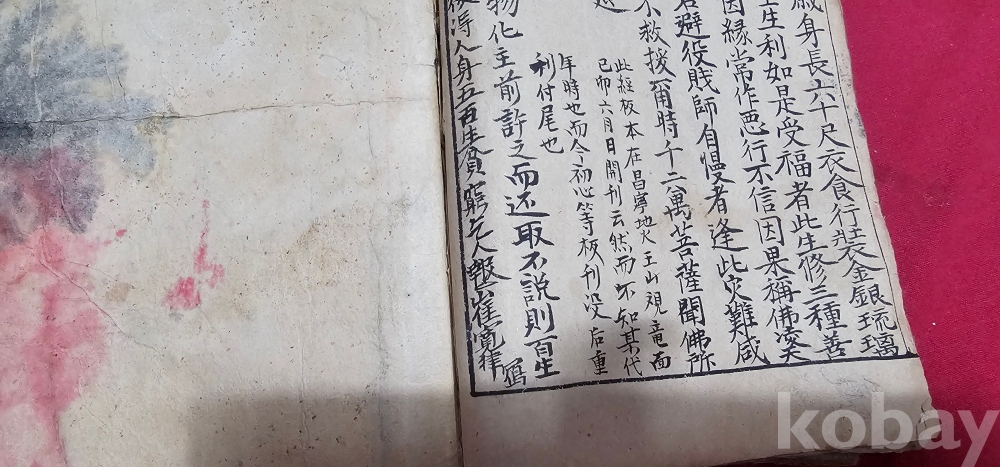 歲身長六十尺衣食行裝金銀琉璃
生利如是受福者此生修三種善
因緣常作悪行不信因果稱佛凌天
若避役賤師自慢者逢此灾難咸
不救援甭時千二萬菩薩聞佛所
此經板本在昌寧地火王山観竜面
己卯六月日開刊云然而不知某代
年時也而今初心等板刊没后重
刊付尾也
物化主前許之而还取不說則百生
淂人身五百生貧窮乞人報崔寛祥寫
kobay